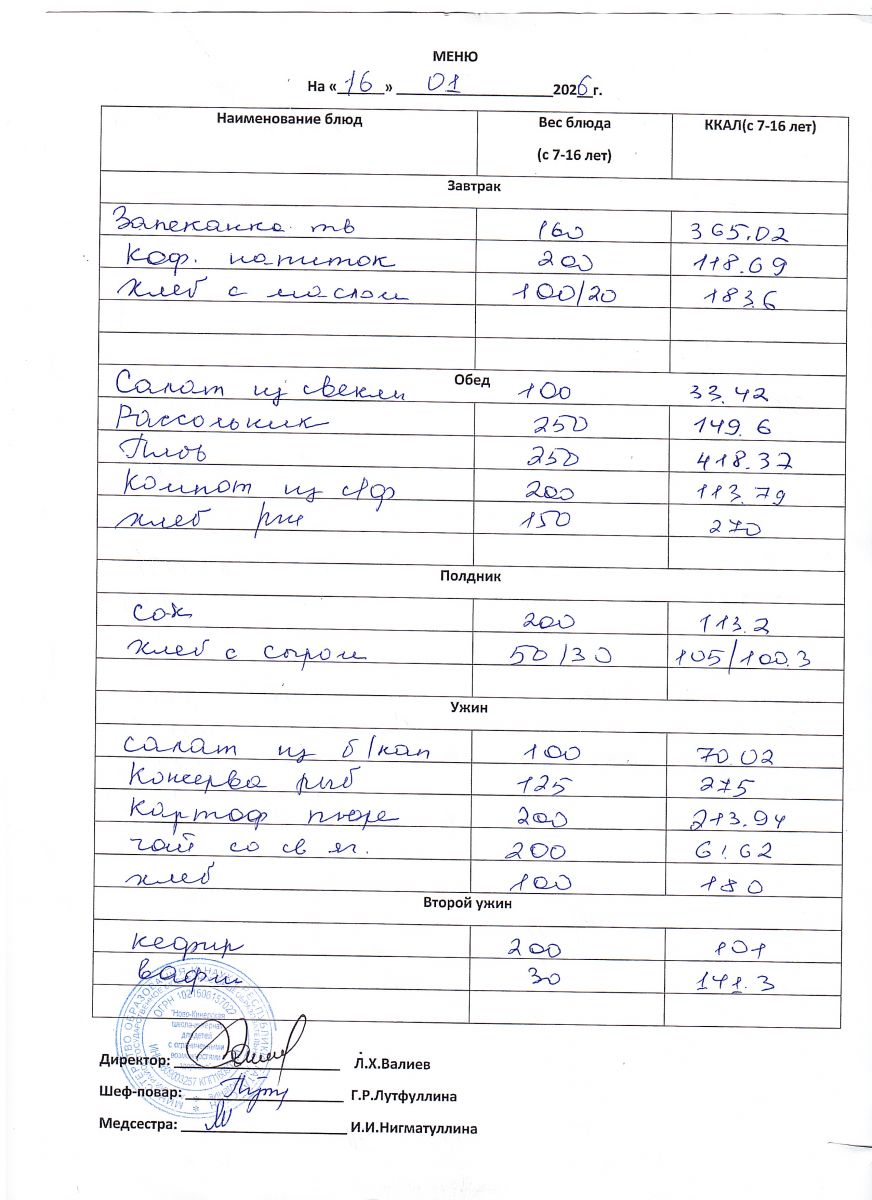 МЕНЮ
На «16» 01 2026 г.
Наименование блюд Вес блюда (с 7-16 лет) ККАЛ(с 7-16 лет)
Завтрак
Запеканка тв 160 365.02
Коф. напиток 200 118.69
хлеб с маслом 100/20 183.6
Обед
Салат из свекли 100 33.42
Рассольник 250 149.6
Плов 250 418.37
Компот из с/ф 200 113.79
хлеб рж 150 270
Полдник
сок 200 113.2
хлеб с сыром 50/30 105/100.3
Ужин
салат из б/кап 100 70.02
Консерва рыб 125 275
Картоф пюре 200 213.94
чай со св яг. 200 61.62
хлеб 100 180
Второй ужин
кефир 200 101
вафли 30 141.3
Директор: Л.Х.Валиев
Шеф-повар: Г.Р.Лутфуллина
Медсестра: И.И.Нигматуллина